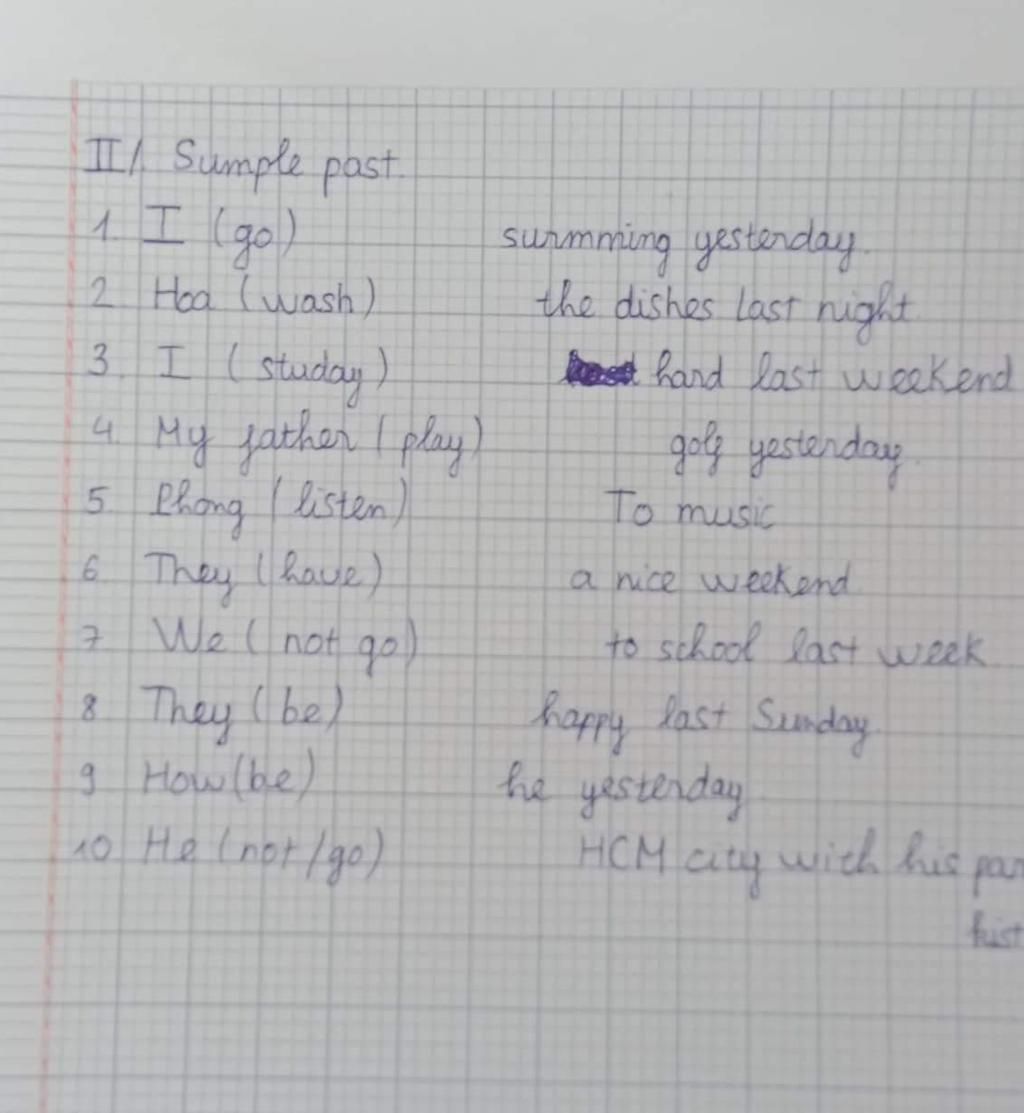 II/. Sumple past.
1. I (go) surmming yesterday.
2 Hoa (wash) the dishes last night.
3. I (studay) hard last weekend
4. My father (play) golf yesterday.
5 Phong (listen) To music
6 They (have) a nice weekend
7 We (not go) to school last week
8 They (be) happy last Sunday.
9 How (be) he yesterday
10 He (not/go) HCM city with his par